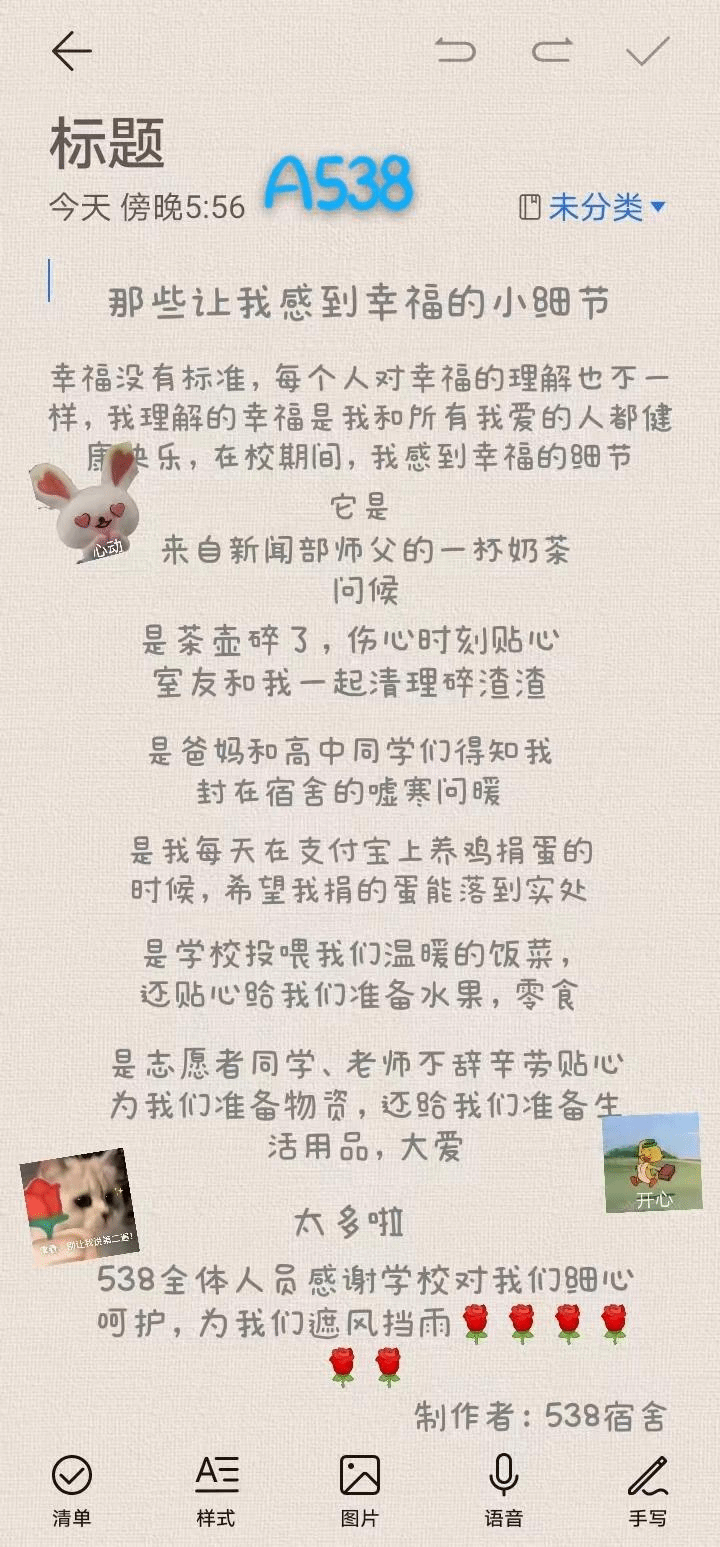 标题
A538
今天 傍晚5:56
未分类
那些让我感到幸福的小细节
幸福没有标准，每个人对幸福的理解也不一
样，我理解的幸福是我和所有我爱的人都健
康快乐，在校期间，我感到幸福的细节
它是
心动
来自新闻部师父的一杯奶茶
问候
是茶壶碎了，伤心时刻贴心
室友和我一起清理碎渣渣
是爸妈和高中同学们得知我
封在宿舍的嘘寒问暖
是我每天在支付宝上养鸡捐蛋的
时候，希望我捐的蛋能落到实处
是学校投喂我们温暖的饭菜，
还贴心给我们准备水果，零食
是志愿者同学、老师不辞辛劳贴心
为我们准备物资，还给我们准备生
活用品，大爱
开心
太多啦
别让我说第二遍！
538全体人员感谢学校对我们细心
呵护，为我们遮风挡雨🌹🌹🌹🌹
🌹🌹
制作者：538宿舍
清单
样式
图片
语音
手写